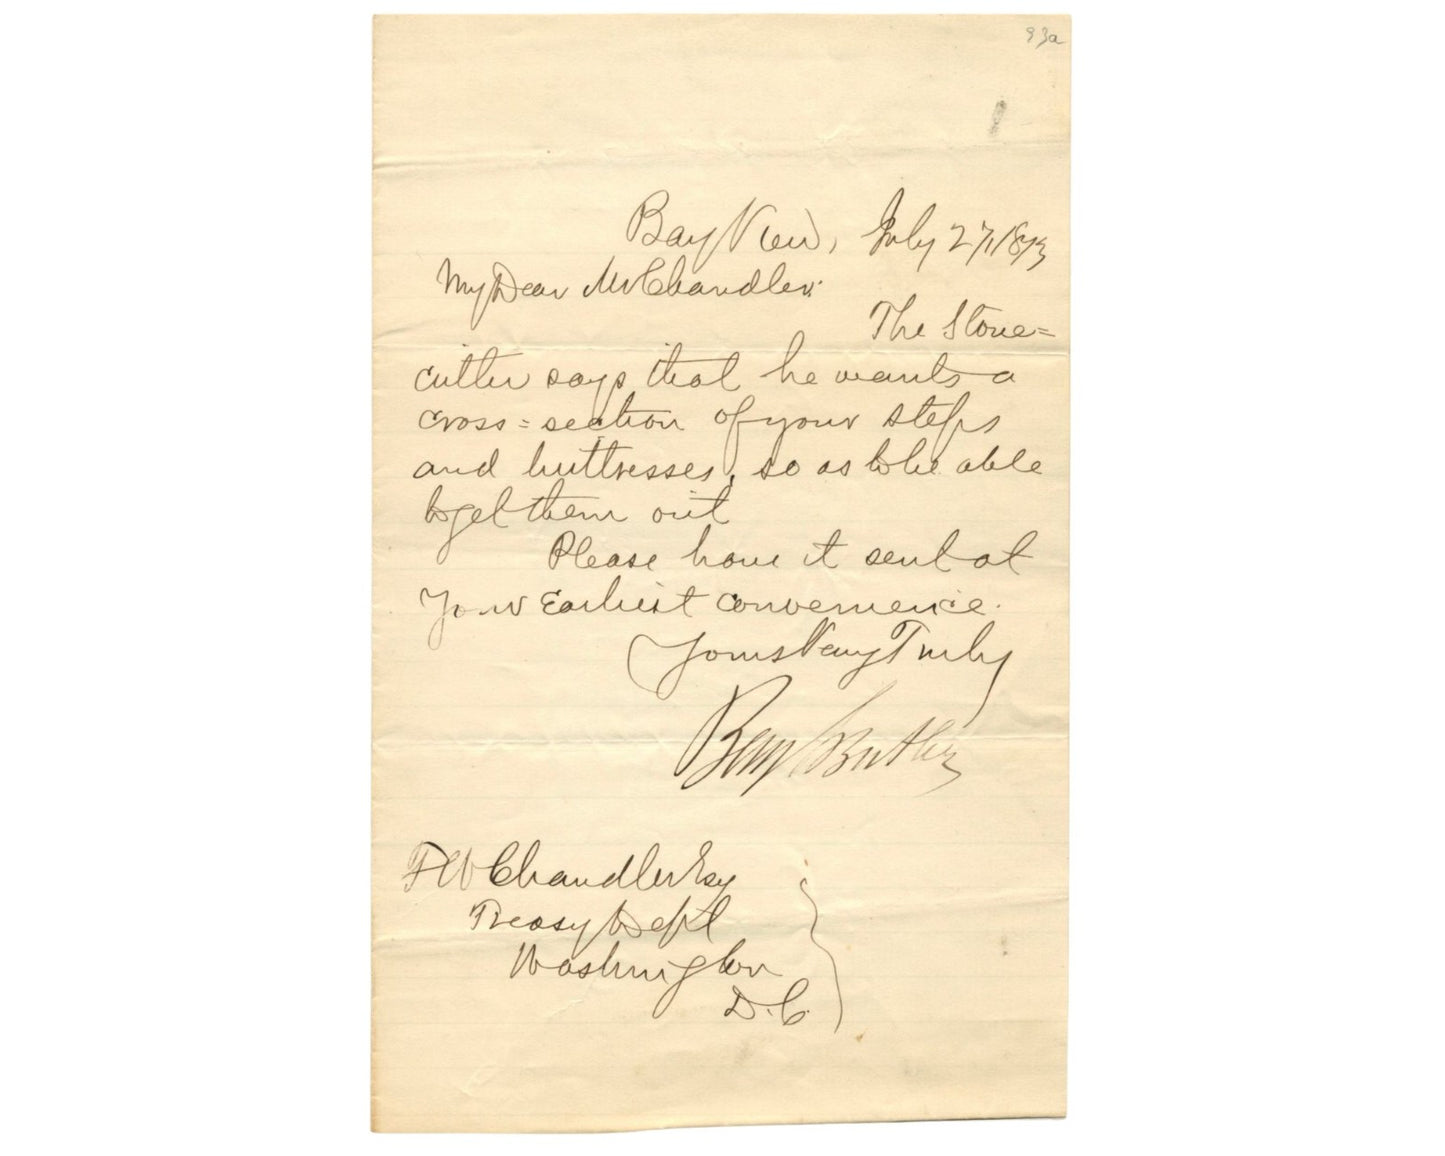 93a
Bay View, July 27, 1873
My Dear Mr Chandler:
The Stone=
cutter says that he wants a
cross=section of your steps
and buttresses, so as to be able
to get them out
Please have it sent at
your Earliest convenience.
Yours Very Truly
Benj F Butler
F W Chandler Esq
Treasy Dept
Washington
D.C.